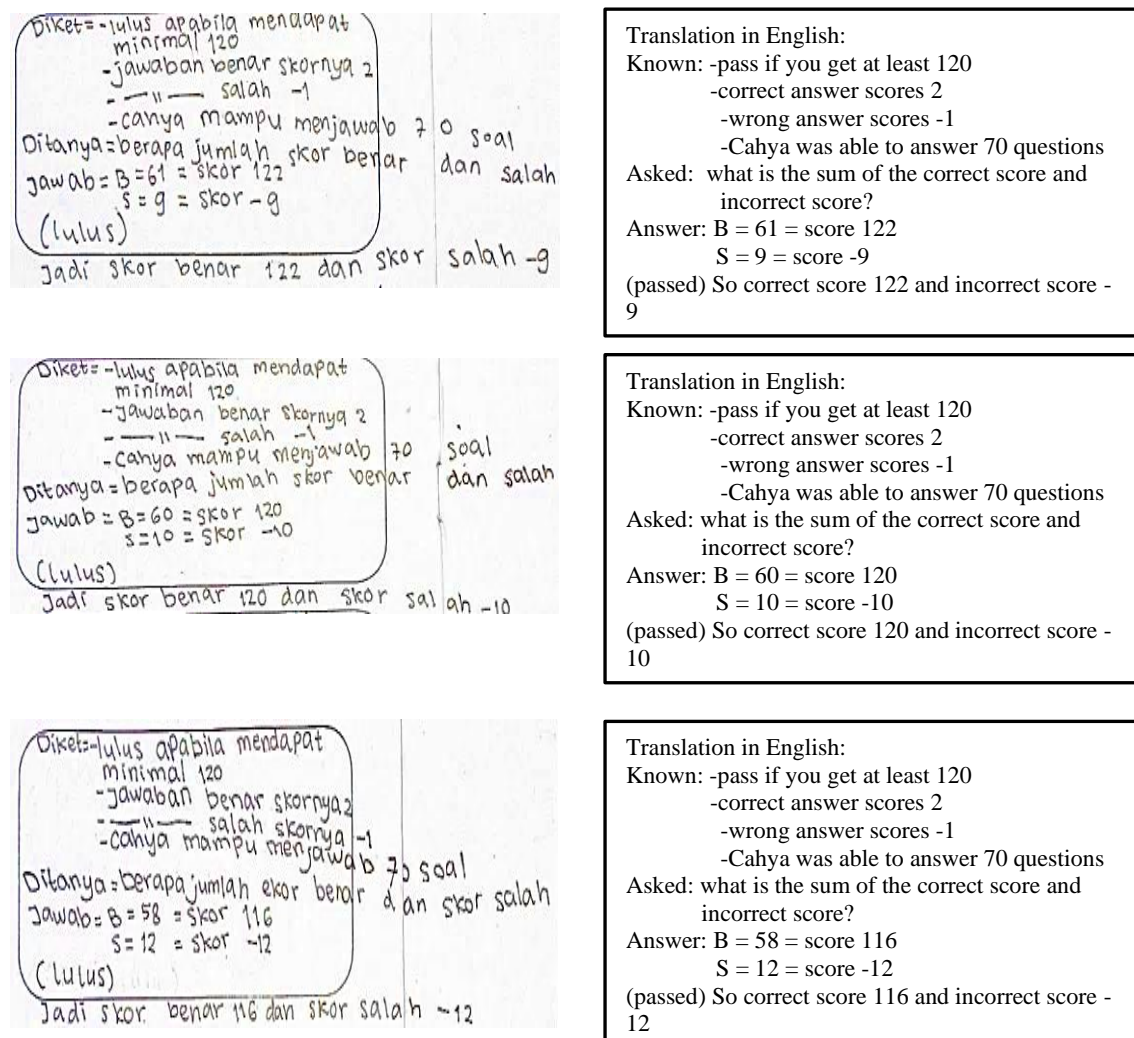 Diket= -lulus apabila mendapat
minimal 120
-jawaban benar skornya 2
- —〃— salah -1
-canya mampu menjawab 70 soal
Ditanya=berapa jumlah skor benar dan salah
Jawab= B=61 = skor 122
S=9 = skor -9
(lulus)
Jadi skor benar 122 dan skor salah -9
Translation in English:
Known: -pass if you get at least 120
-correct answer scores 2
-wrong answer scores -1
-Cahya was able to answer 70 questions
Asked: what is the sum of the correct score and
incorrect score?
Answer: B = 61 = score 122
S = 9 = score -9
(passed) So correct score 122 and incorrect score -
9
Diket= -lulus apabila mendapat
minimal 120
-Jawaban benar skornya 2
- —〃— salah -1
-canya mampu menjawab 70 soal
Ditanya=berapa jumlah skor benar dan salah
Jawab = B=60 = skor 120
S=10 = skor -10
(lulus)
Jadi skor benar 120 dan skor salah -10
Translation in English:
Known: -pass if you get at least 120
-correct answer scores 2
-wrong answer scores -1
-Cahya was able to answer 70 questions
Asked: what is the sum of the correct score and
incorrect score?
Answer: B = 60 = score 120
S = 10 = score -10
(passed) So correct score 120 and incorrect score -
10
Diket=-lulus apabila mendapat
minimal 120
-Jawaban benar skornya 2
- —〃— salah skornya -1
-cahya mampu menjawab 70 soal
Ditanya=berapa jumlah ekor benar dan skor salah
Jawab= B = 58 = skor 116
S= 12 = skor -12
(lulus)
Jadi skor benar 116 dan skor salah -12
Translation in English:
Known: -pass if you get at least 120
-correct answer scores 2
-wrong answer scores -1
-Cahya was able to answer 70 questions
Asked: what is the sum of the correct score and
incorrect score?
Answer: B = 58 = score 116
S = 12 = score -12
(passed) So correct score 116 and incorrect score -
12